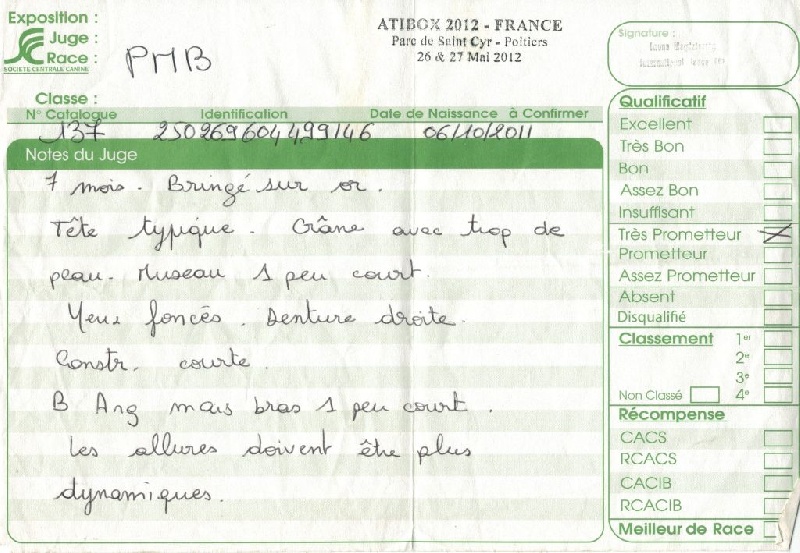 Exposition :
Juge :
Race :
SOCIETE CENTRALE CANINE
PMB
ATIBOX 2012 - FRANCE
Parc de Saint Cyr - Poitiers
26 & 27 Mai 2012
Signature :
Classe :
N° Catalogue Identification Date de Naissance à Confirmer
137 250269604499146 06/10/2011
Notes du Juge
7 mois. Bringé sur or.
Tête typique. Crâne avec trop de
peau. Museau 1 peu court.
Yeux foncés. Denture droite.
Constr. courte.
B Ang mais bras 1 peu court.
Les allures doivent être plus
dynamiques.
Qualificatif
Excellent
Très Bon
Bon
Assez Bon
Insuffisant
Très Prometteur X
Prometteur
Assez Prometteur
Absent
Disqualifié
Classement 1er
2e
3e
Non Classé 4e
Récompense
CACS
RCACS
CACIB
RCACIB
Meilleur de Race